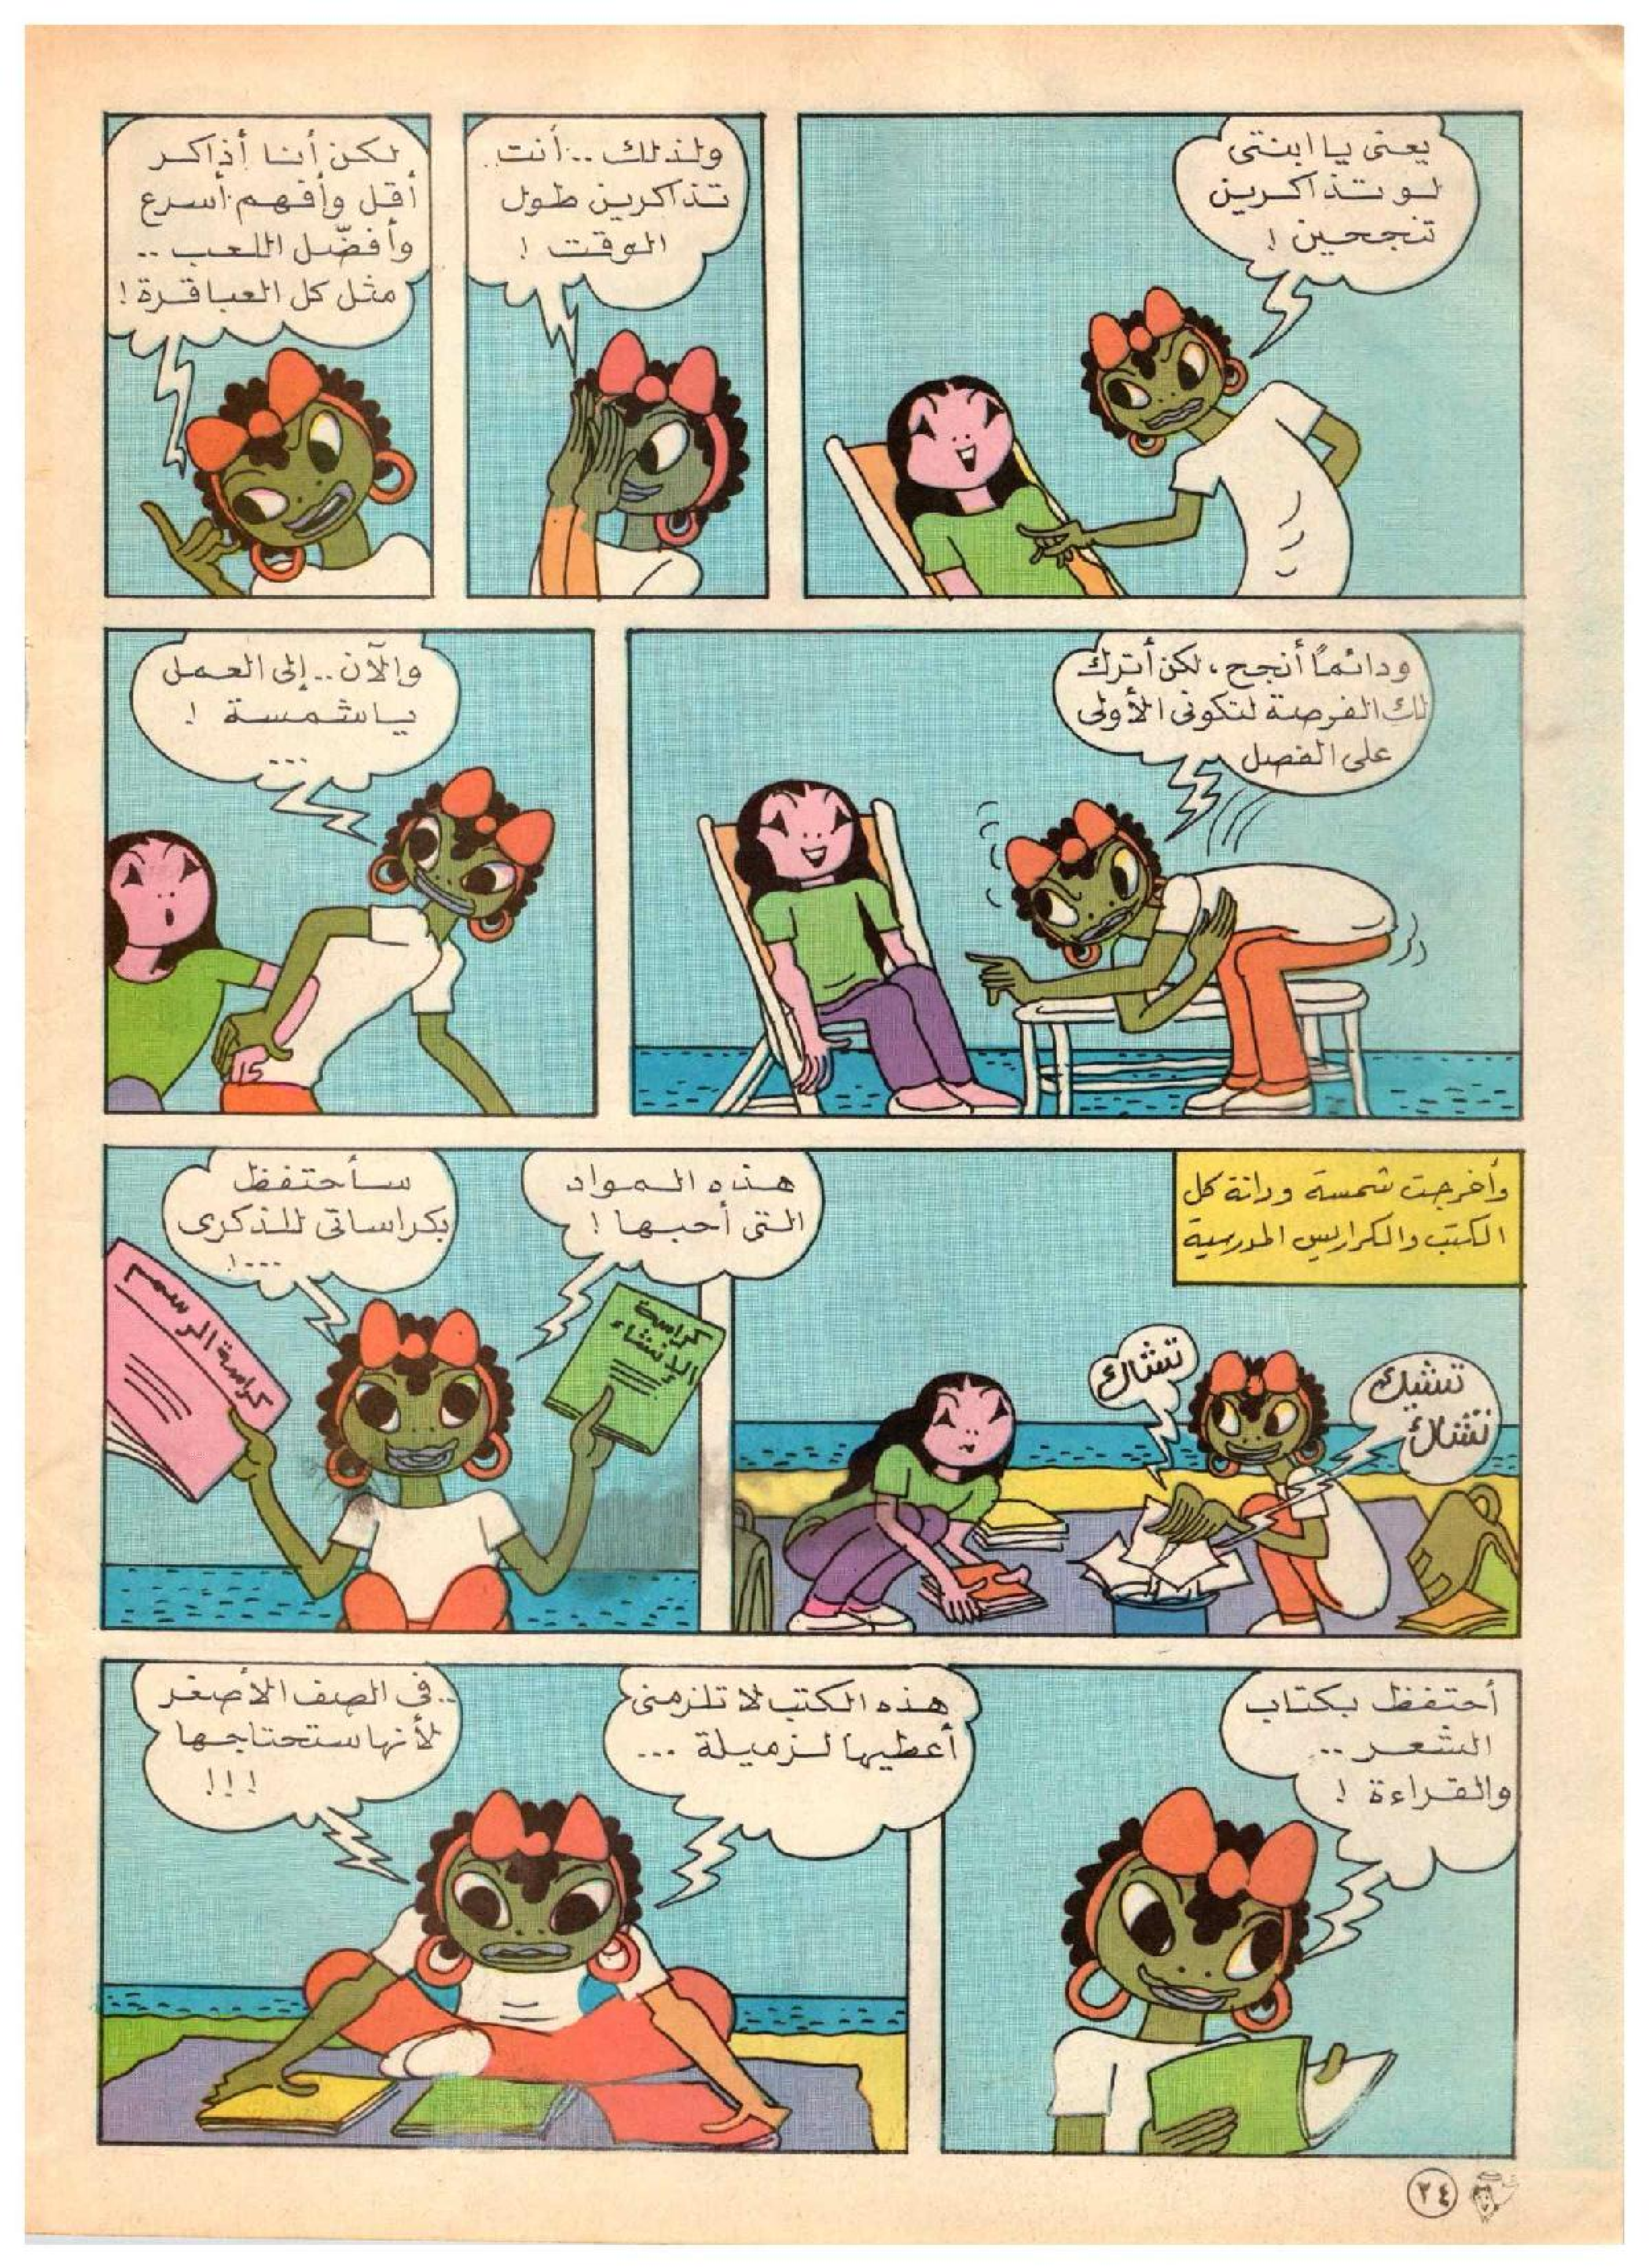 يعنى يا ابنتى
لو تذاكرين
تنجحين !
ولذلك .. أنت
تذاكرين طول
الوقت !
لكن أنا أذاكر
أقل وأفهم أسرع
وأفضّل اللعب ..
مثل كل العباقرة !
ودائماً أنجح ، لكن أترك
لك الفرصة لتكونى الأولى
على الفصل
والآن .. إلى العمل
يا شمسة !
...
وأخرجت شمسة ودانة كل
الكتب والكراريس المدرسية
تشيك
تشاك
تشاك
هذه المواد
التى أحبها !
كراسة
الإنشاء
سأحتفظ
بكراساتى للذكرى
...!
كراسة الرسم
أحتفظ بكتاب
الشعر ..
والقراءة !
هذه الكتب لا تلزمنى
أعطيها لزميلة ...
.. فى الصف الأصغر
لأنها ستحتاجها
!!!
٢٤